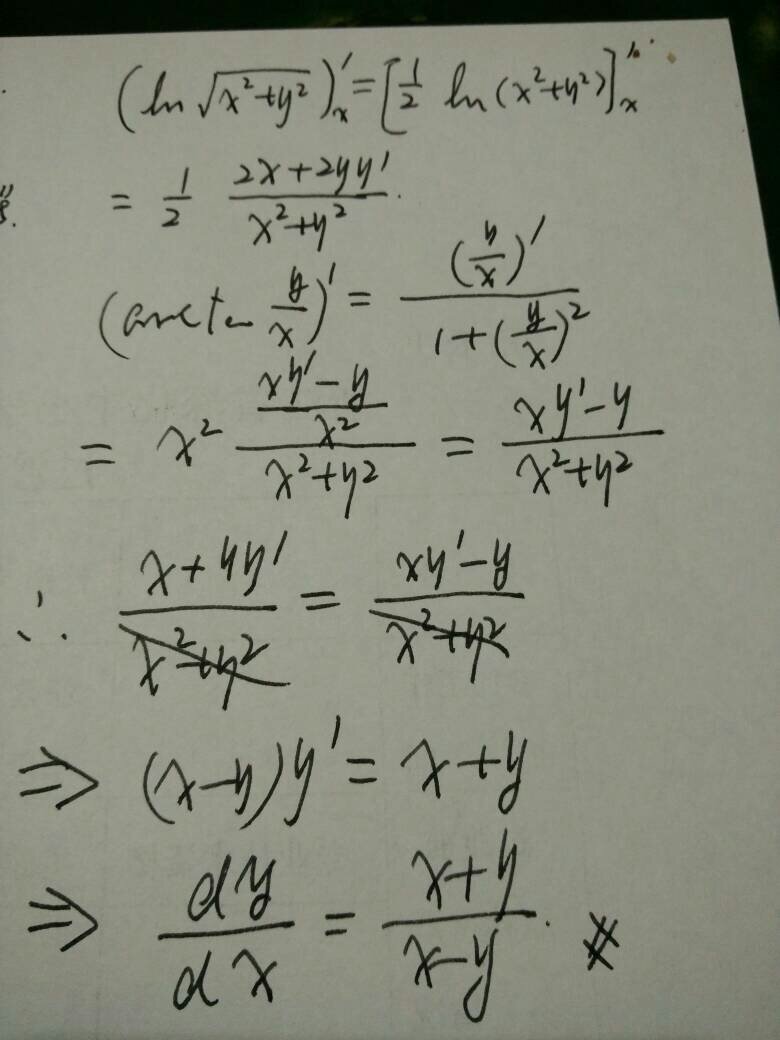 (ln √(x²+y²))'ₓ = [1/2 ln(x²+y²)]'ₓ
= 1/2 (2x+2yy')/(x²+y²).
(arctan y/x)' = (y/x)'/(1+(y/x)²)
= x² ((xy'-y)/x²)/(x²+y²) = (xy'-y)/(x²+y²)
∴ (x+yy')/(x²+y²) = (xy'-y)/(x²+y²)
⇒ (x-y)y' = x+y
⇒ dy/dx = (x+y)/(x-y). #